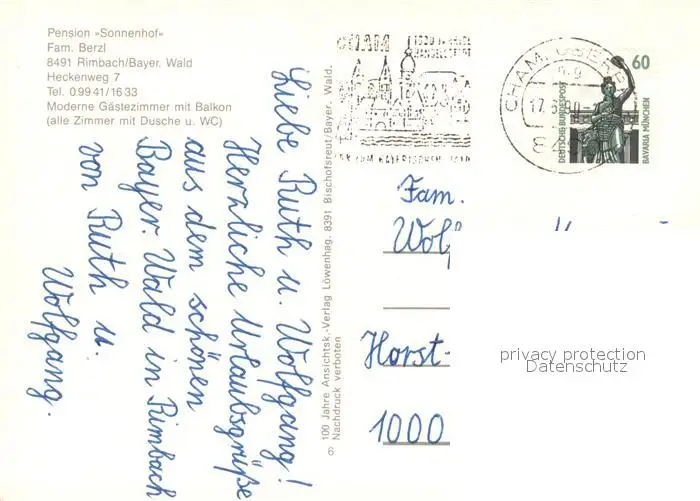 Pension »Sonnenhof«
Fam. Berzl
8491 Rimbach/Bayer. Wald
Heckenweg 7
Tel. 09941/1633
Moderne Gästezimmer mit Balkon
(alle Zimmer mit Dusche u. WC)
Liebe Ruth u. Wolfgang!
Herzliche Urlaubsgrüße
aus dem schönen
Bayer. Wald in Rimbach
von Ruth u.
Wolfgang.
100 Jahre Ansichtsk.-Verlag Löwenhag. 8391 Bischofsreut/Bayer. Wald.
Nachdruck verboten
6
CHAM
ZUM BAYERISCHEN WALD
CHAM, OBERPF
17.
60
DEUTSCHE BUNDESPOST
BAVARIA MÜNCHEN
Fam.
Horst-
1000
privacy protection
Datenschutz